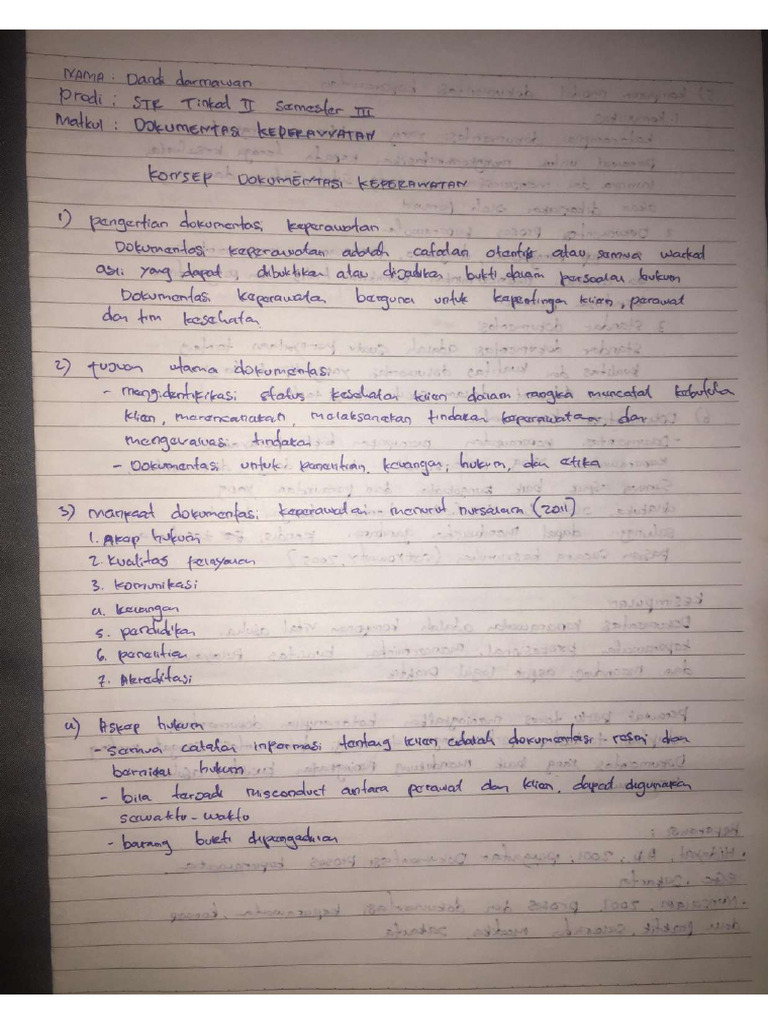 NAMA : Dandi darmawan
Prodi : STR Tinkat II Semester III
Matkul : DOKUMENTASI KEPERAWATAN
KONSEP DOKUMENTASI KEPERAWATAN
1) pengertian dokumentasi keperawatan
Dokumentasi keperawatan adalah catatan otentik atau semua warkad
asli yang dapat dibuktikan atau dijadikan bukti dalam persoalan hukum
Dokumentasi keperawatan berguna untuk kepentingan klien, perawat
dan tim kesehatan.
2) tujuan utama dokumentasi
- mengidentifikasi status kesehatan klien dalam rangka mencatat kebutuhan
klien, merencanakan, melaksanakan tindakan keperawatan, dan
mengevaluasi tindakan
- Dokumentasi untuk penelitian, keuangan, hukum, dan etika
3) manfaat dokumentasi keperawatan menurut nursalam (2011)
1. Askep hukum
2. Kualitas pelayanan
3. komunikasi
4. keuangan
5. pendidikan
6. penelitian
7. Akreditasi
4) Askap hukum
- semua catatan informasi tentang klien adalah dokumentasi resmi dan
bernilai hukum
- bila terjadi misconduct antara perawat dan klien, dapad digunakan
sewaktu-waktu
- barang bukti dipengadilan